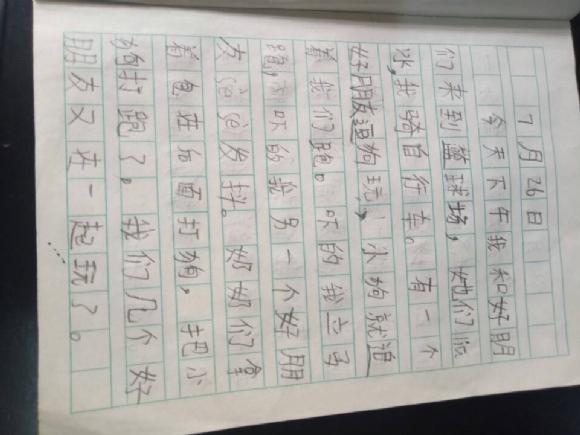 7月26日
今天下午我和好朋
们来到篮球场，她们
冰，我骑自行车。有一个
好朋友逗狗玩，小狗就追
着我们跑。吓的我立马
跑，吓的我另一个好朋
友发抖。奶奶们拿
着包在后面打狗，把小
狗打跑了。我们几个好
朋友又在一起玩了。